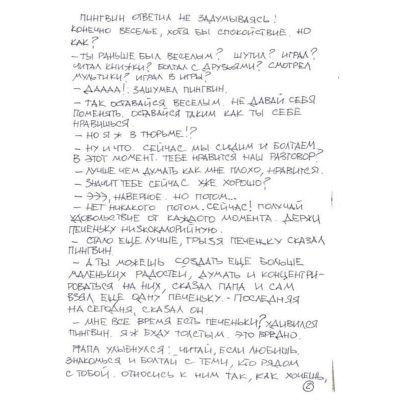 ПИНГВИН ОТВЕТИЛ НЕ ЗАДУМЫВАЯСЬ!
КОНЕЧНО ВЕСЕЛЬЕ, ХОТЯ БЫ СПОКОЙСТВИЕ. НО
КАК?
– ТЫ РАНЬШЕ БЫЛ ВЕСЕЛЫМ? ШУТИЛ? ИГРАЛ?
ЧИТАЛ КНИЖКИ? БОЛТАЛ С ДРУЗЬЯМИ? СМОТРЕЛ
МУЛЬТИКИ? ИГРАЛ В ИГРЫ?
– ДАААА!: ЗАШУМЕЛ ПИНГВИН.
– ТАК ОСТАВАЙСЯ ВЕСЕЛЫМ. НЕ ДАВАЙ СЕБЯ
ПОМЕНЯТЬ. ОСТАВАЙСЯ ТАКИМ КАК ТЫ СЕБЕ
НРАВИШЬСЯ.
– НО Я Ж В ТЮРЬМЕ!?
– НУ И ЧТО. СЕЙЧАС МЫ СИДИМ И БОЛТАЕМ
В ЭТОТ МОМЕНТ. ТЕБЕ НРАВИТСЯ НАШ РАЗГОВОР?
– ЛУЧШЕ ЧЕМ ДУМАТЬ КАК МНЕ ПЛОХО, НРАВИТСЯ.
– ЗНАЧИТ ТЕБЕ СЕЙЧАС УЖЕ ХОРОШО?
– ЭЭЭ, НАВЕРНОЕ. НО ПОТОМ...
– НЕТ НИКАКОГО ПОТОМ. СЕЙЧАС! ПОЛУЧАЙ
УДОВОЛЬСТВИЕ ОТ КАЖДОГО МОМЕНТА. ДЕРЖИ
ПЕЧЕНЬКУ НИЗКОКАЛОРИЙНУЮ.
– СТАЛО ЕЩЕ ЛУЧШЕ, ГРЫЗЯ ПЕЧЕНЬКУ СКАЗАЛ
ПИНГВИН.
– А ТЫ МОЖЕШЬ СОЗДАТЬ ЕЩЕ БОЛЬШЕ
МАЛЕНЬКИХ РАДОСТЕЙ, ДУМАТЬ И КОНЦЕНТРИ-
РОВАТЬСЯ НА НИХ, СКАЗАЛ ПАПА И САМ
ВЗЯЛ ЕЩЕ ОДНУ ПЕЧЕНЬКУ. – ПОСЛЕДНЯЯ
НА СЕГОДНЯ, СКАЗАЛ ОН.
– МНЕ ВСЕ ВРЕМЯ ЕСТЬ ПЕЧЕНЬКИ? УДИВИЛСЯ
ПИНГВИН. Я Ж БУДУ ТОЛСТЫМ. ЭТО ВРЕДНО.
ПАПА УЛЫБНУЛСЯ: ЧИТАЙ, ЕСЛИ ЛЮБИШЬ.
ЗНАКОМЬСЯ И БОЛТАЙ С ТЕМИ, КТО РЯДОМ
С ТОБОЙ. ОТНОСИСЬ К НИМ ТАК, КАК ХОЧЕШЬ,
2